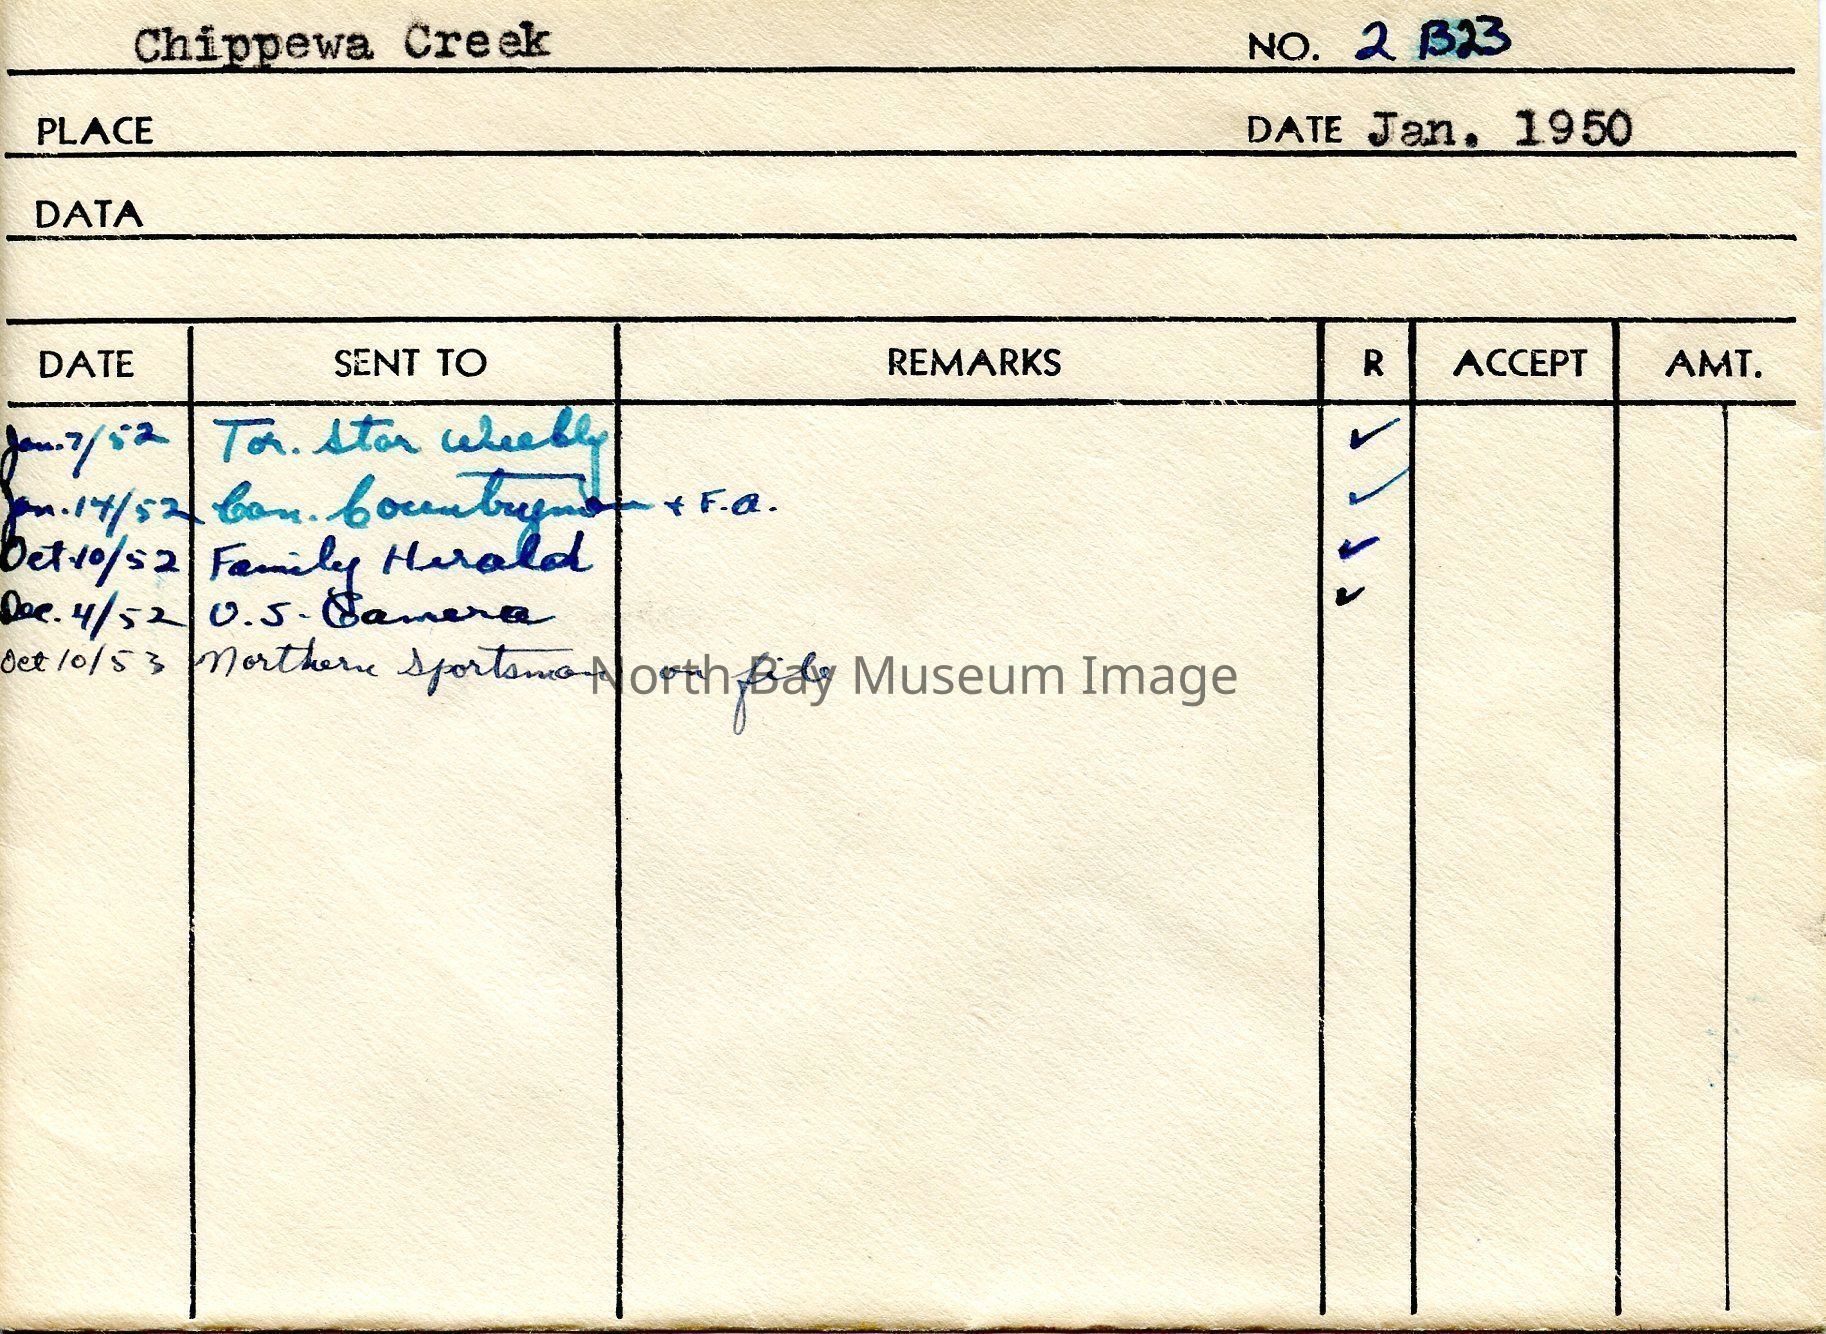 Chippewa Creek NO. 2 B23
PLACE DATE Jan. 1950
DATA
DATE SENT TO REMARKS R ACCEPT AMT.
Jan. 7/52 Tor. Star Weekly ✓
Jan. 14/52 Can. Countryman + F.A. ✓
Oct 10/52 Family Herald ✓
Dec. 4/52 U.S. Camera ✓
Oct 10/53 Northern Sportsman on file
North Bay Museum Image